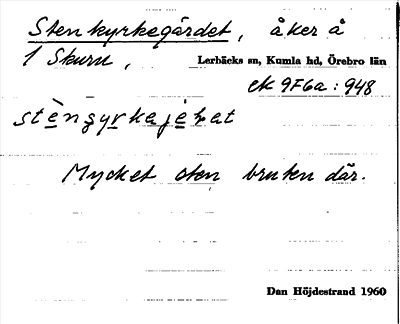 Stenkyrkegärdet, åker å
1 Skuru,
Lerbäcks sn, Kumla hd, Örebro län
ek 9F6a:948
Mycket sten bruten där.
Dan Höjdestrand 1960